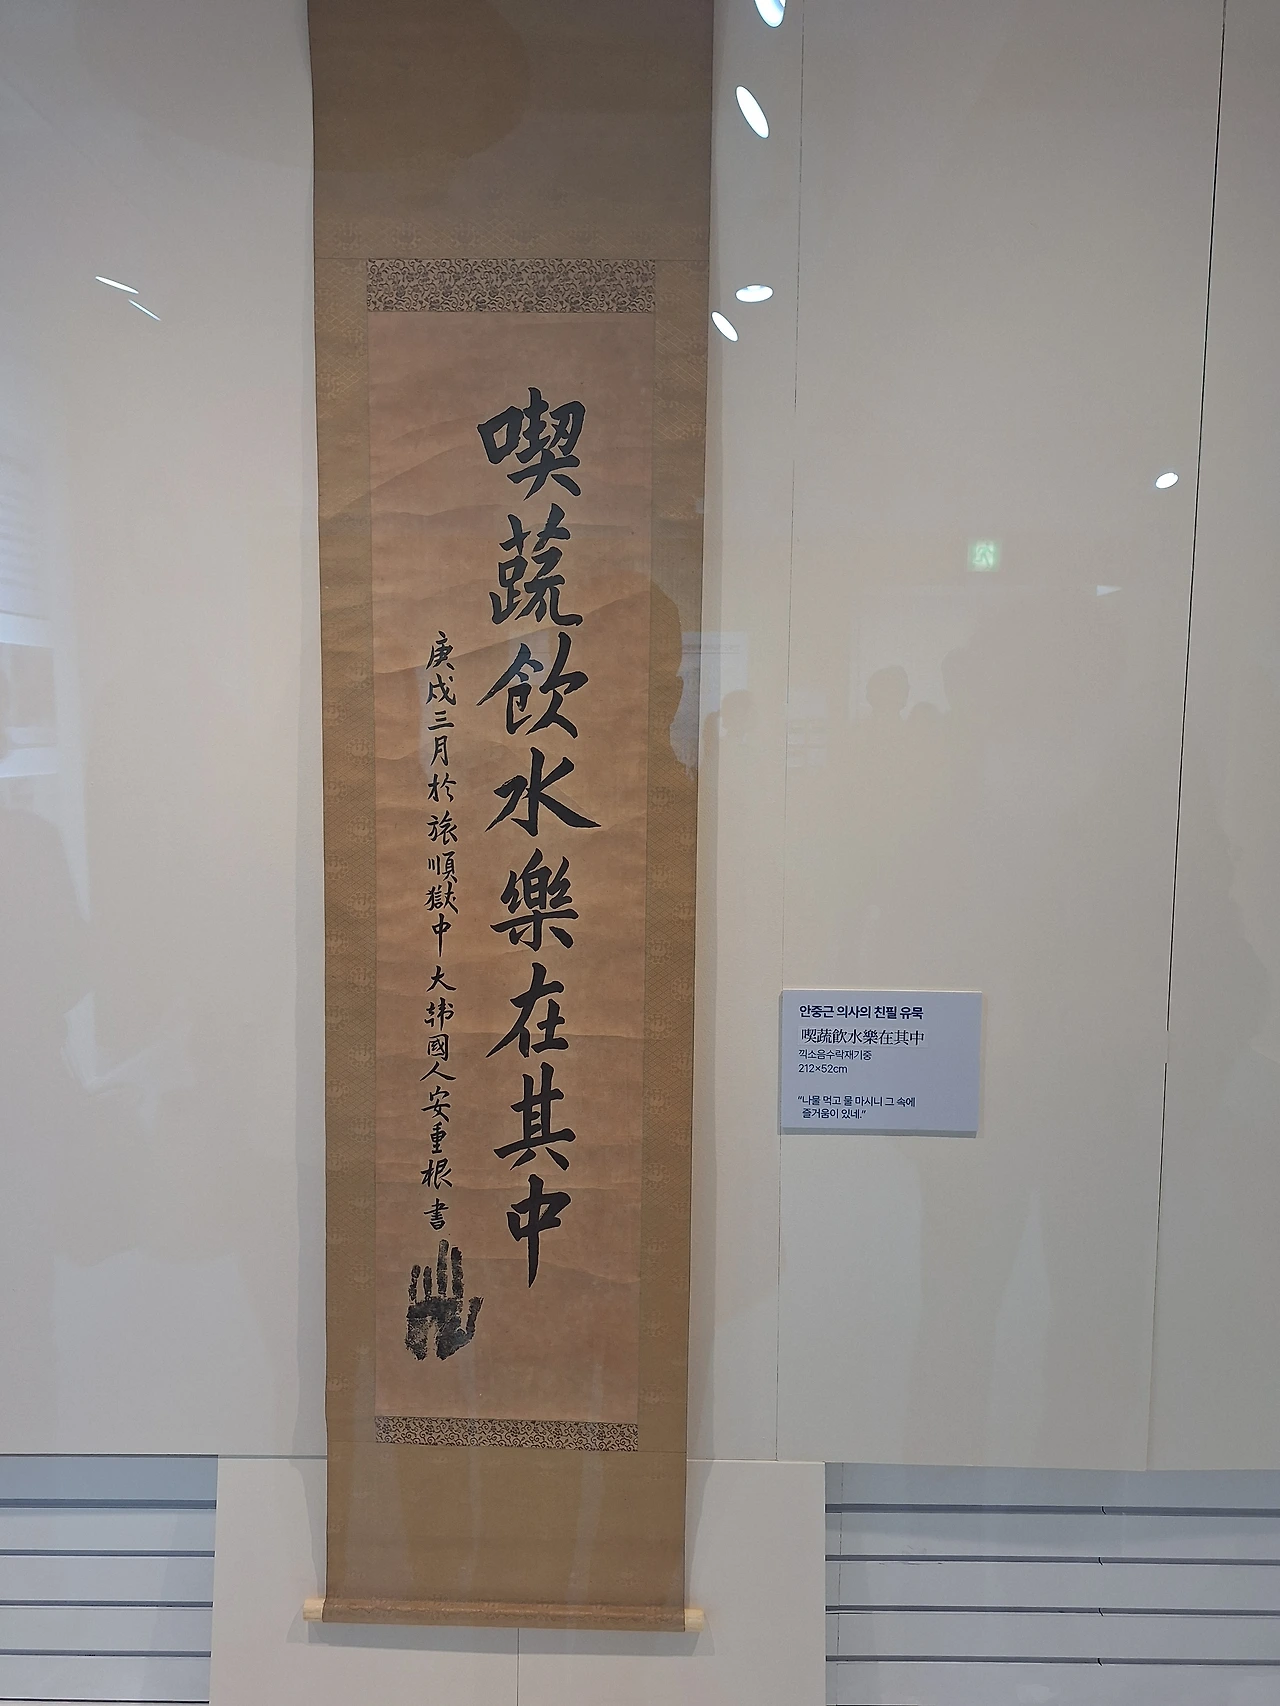 喫蔬飮水樂在其中
庚戌三月於旅順獄中大韓國人安重根書
안중근 의사의 친필 유묵
喫蔬飮水樂在其中
끽소음수락재기중
212×52cm
“나물 먹고 물 마시니 그 속에
즐거움이 있네.”